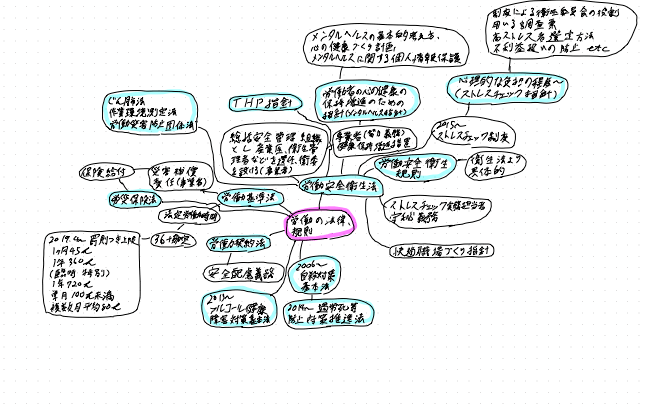 メンタルヘルスの基本的考え方、
心の健康づくり計画、
メンタルヘルスに関する個人情報保護
制度による衛生委員会の役割
用いる調査票
高ストレス者選定方法
不利益扱いの防止 etc
心理的な負担の程度～
(ストレスチェック指針)
労働者の心の健康の
保持増進のための
指針(メンタルヘルス指針)
THP指針
じん肺法
作業環境測定法
労働災害防止団体法
総括安全管理 組織
とし 産業医、衛生管
理者などを選任、
を設ける(事業者)
事業者(努力義務)
健康保持増進措置
2015～
ストレスチェック制度
労働安全衛生
規則
衛生法より
具体的
労働安全衛生法
保険給付
災害補償
責任(事業者)
労災保険法
労働基準法
法定労働時間
36協定
労働の法律、
規則
ストレスチェック実施担当者
守秘義務
快適職場づくり指針
労働契約法
安全配慮義務
2019.4～ 罰則つき上限
1ヶ月45h
1年360h
(臨時 特別)
1年720h
単月100h未満
複数月平均80h
2006～
自殺対策
基本法
2013～
アルコール健康
障害対策基本法
2014～ 過労死等
防止対策推進法